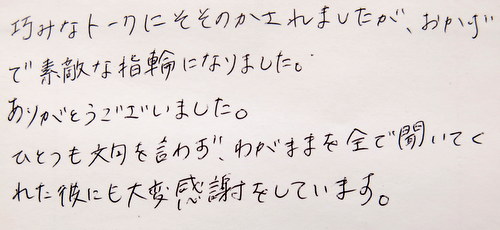 巧みなトークにそそのかされましたが、おかげ
で素敵な指輪になりました。
ありがとうございました。
ひとつも文句を言わず、わがままを全て聞いてく
れた彼にも大変感謝をしています。